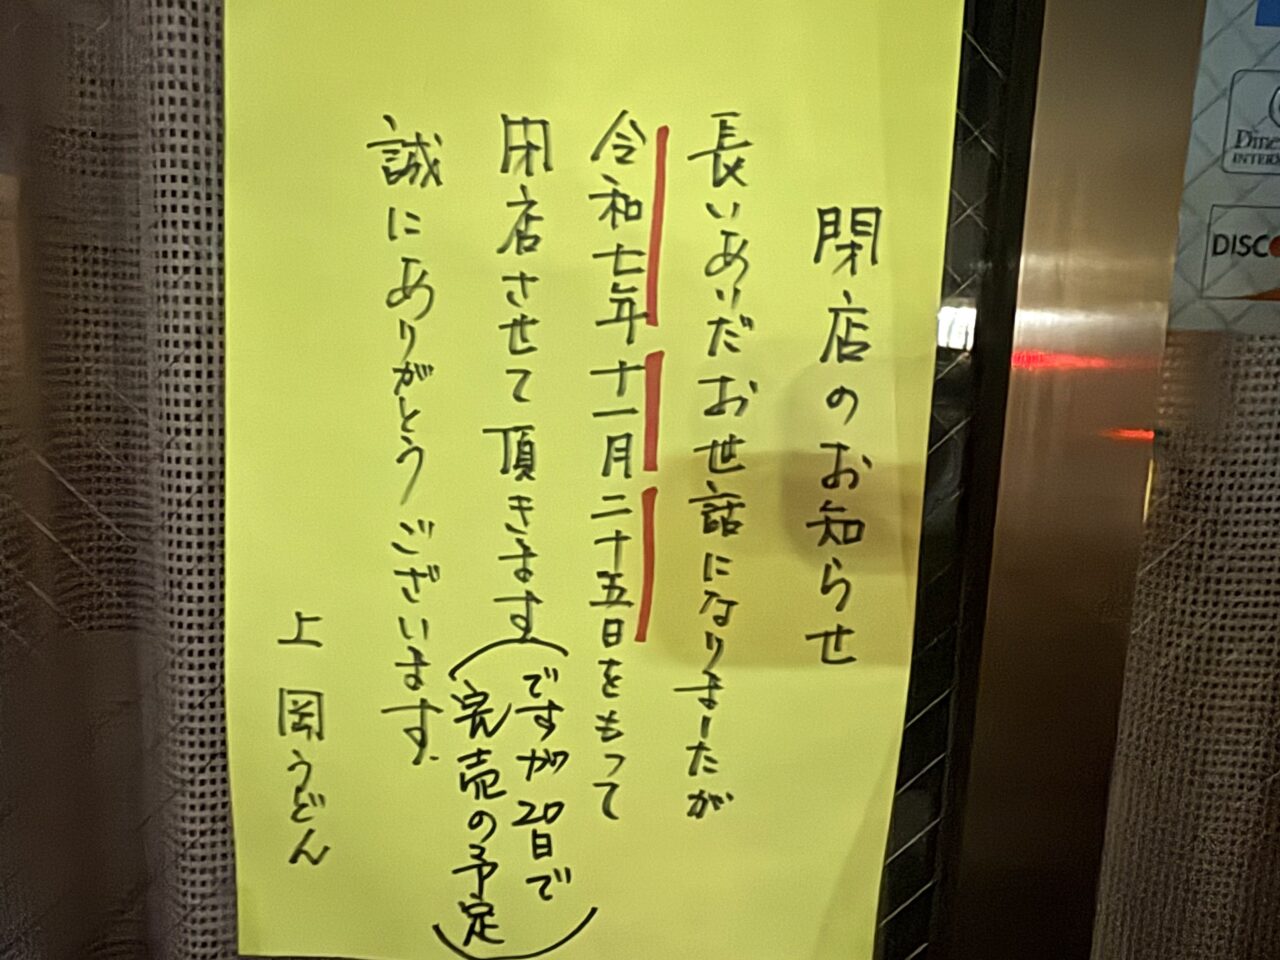 閉店のお知らせ
長いあいだお世話になりましたが
令和七年十一月二十五日をもって
閉店させて頂きます
(ですが20日で
完売の予定)
誠にありがとうございます。
上岡うどん
Dine
INTERN
DISCO